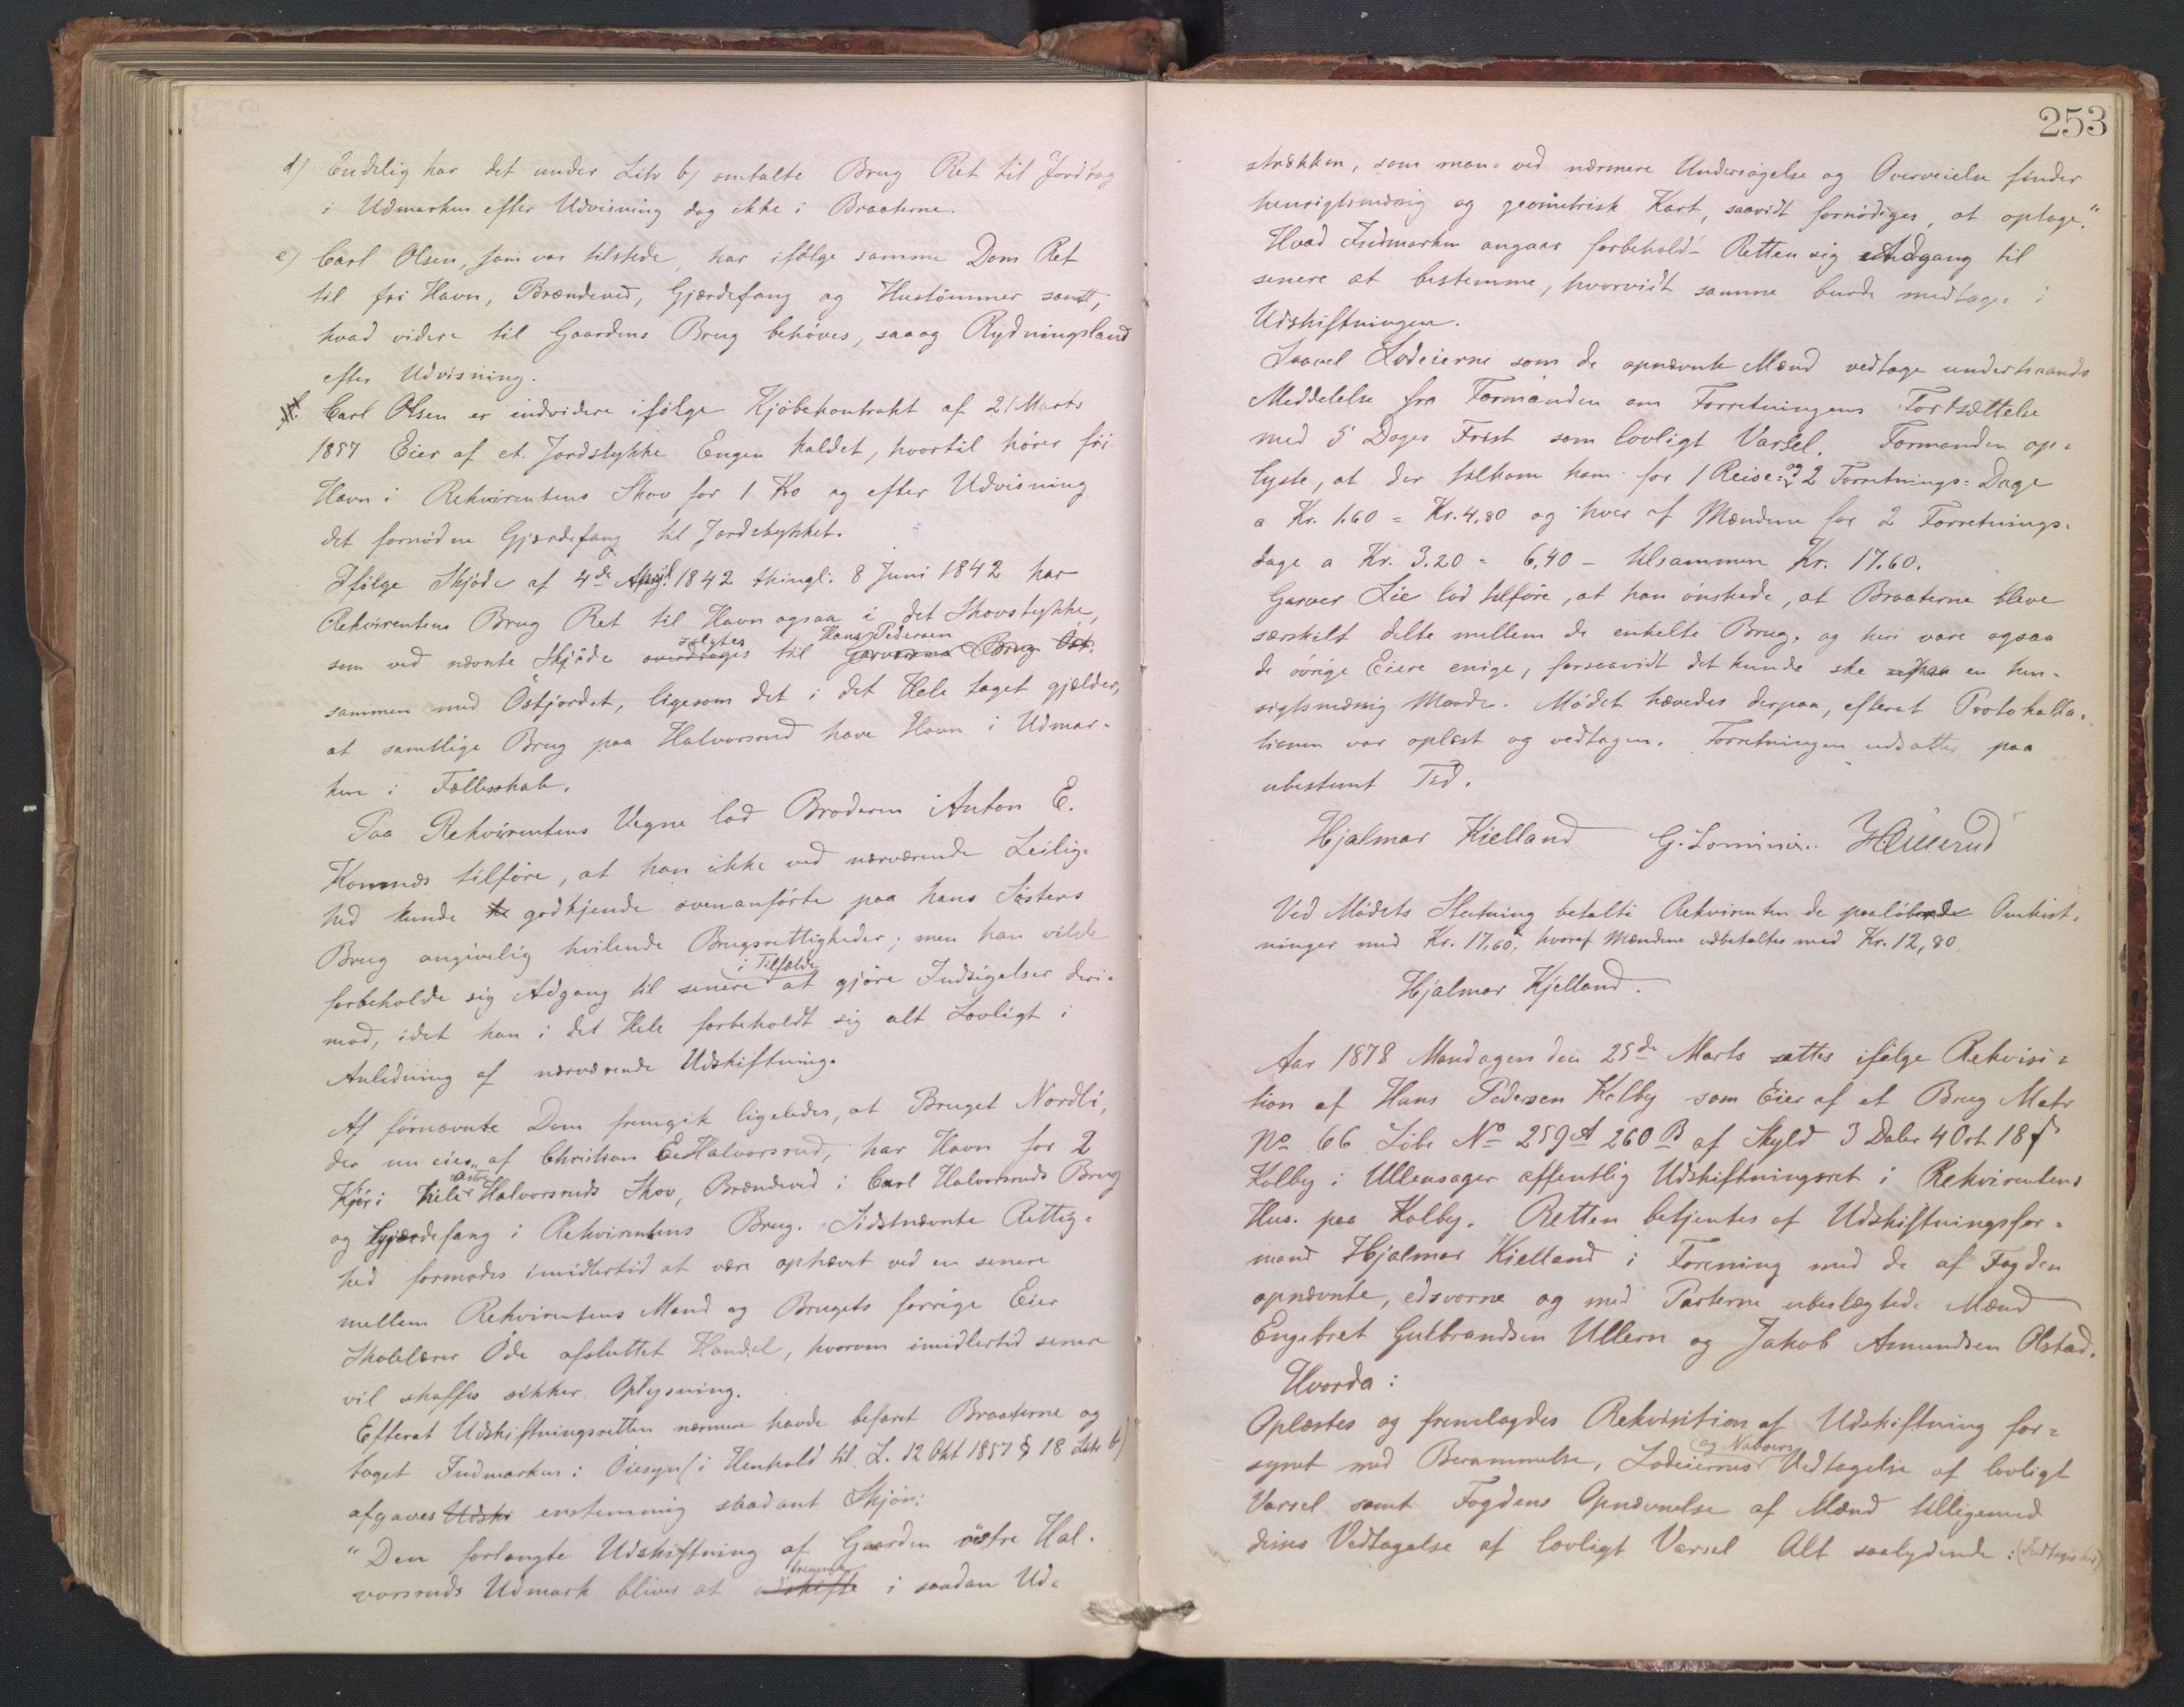 d) Endelig har det under Litr b) omtalte Brug Ret til Jordtag
i Udmarken efter Udvisning dog ikke i Braaterne.
e) Carl Olsen, som var tilstede, har ifölge samme Dom Ret
til fri Havn, Brændeved, Gjærdefang og Hustömmer samt,
hvad videre til Gaardens Brug behöves, saaog Rydningsland
efter Udvisning.
f. Carl Olsen er endvidere ifölge Kjöbekontrakt af 21 Marts
1857 Eier af et Jordstykke Engen kaldet, hvortil hörer fri
Havn i Rekvirentens Skov for 1 Ko og efter Udvisning
det fornödne Gjærdefang til Jordstykket.
Ifölge Skjöde af 4de 1842 thingl: 8 Juni 1842 har
Rekvirentens Brug Ret til Havn ogsaa i det Skovstykke,
solgtes Hans Pedersen
som ved nævnte Skjöde overdrages til Brug Öst.
sammen med Östjordet, ligesom det i det Hele taget gjælder,
at samtlige Brug paa Halvorsrud have Havn i Udmar-
ken i Fællesskab.
Paa Rekvirentens Vegne lod Broderen Anton E.
Komnæs tilföre, at han ikke ved nærværende Leilig-
hed kunde godkjende ovenanförte paa hans Sösters
Brug angivelig hvilende Brugsrettigheder; men han vilde
i Tilfælde
forbeholde sig Adgang til senere at gjöre Indsigelser deri-
mod, idet han i det Hele forbeholdt sig alt Lovligt i
Anledning af nærværende Udskiftning.
Af förnævnte Dom fremgik ligeledes, at Bruget Nordli,
der nu eies af Christian Halvorsrud, har Havn for 2
Östre
Kjör i hele Halvorsruds Skov, Brændeved i Carl Halvorsruds Brug
og Gjærdefang i Rekvirentens Brug. Sidstnævnte Rettig-
hed formodes imidlertid at være ophævet ved en senere
mellem Rekvirentens Mand og Brugets forrige Eier
Skolelærer Öde afsluttet Handel, hvorom imidlertid senere
vil skaffes sikker Oplysning.
Efterat Udskiftningsretten nærmere havde befaret Braaterne og
taget Indmarken i Öiesyn (i Henhold til L. 12 Okt 1857 § 18 Litr b)
afgaves Udski enstemmig saadant Skjön:
"Den forlangte Udskiftning af Gaarden östre Hal-
fremme
vorsruds Udmark bliver at udskifte i saadan Ud-
253
strækken, som man ved nærmere Undersögelse og Overveielse finder
hensigtsmæssig og geometrisk Kart, saavidt fornödiges, at optage."
Hvad Indmarken angaar forbeholdt Retten sig Adgang til
senere at bestemme, hvorvidt samme burde medtages i
Udskiftningen.
Saavel Lodeierne som de opnævnte Mænd vedtage underhaands
Meddelelse fra Formanden om Forretningens Fortsættelse
med 5 Dages Frist som lovligt Varsel. Formanden op-
lyste, at der tilkom ham for 1 Reise- og 2 Forretnings-Dage
a Kr. 1.60 = Kr. 4,80 og hver af Mændene for 2 Forretnings-
dage a Kr. 3.20 = 6,40 - tilsammen Kr. 17.60.
Garver Lie lod tilföre, at han önskede, at Braaterne bleve
særskilt delte mellem de enkelte Brug, og heri vare ogsaa
de övrige Eiere enige, forsaavidt det kunde ske paa en hen-
sigtsmæssig Maade. Mödet hævedes derpaa, efterat Protokolla-
tionen var oplæst og vedtagen. Forretningen udsattes paa
ubestemt Tid.
Hjalmar Kielland
Ved Mödets Slutning betalte Rekvirenten de paalöbende Omkost-
ninger med Kr. 17,60, hvoraf Mændene udbetaltes med Kr. 12,80.
Hjalmar Kjelland.
Aar 1878 Mandagen den 25de Marts sattes ifölge Rekvisi-
tion af Hans Pedersen Kolby som Eier af et Brug Matr
No 66 Löbe No 259 A 260 B af Skyld 3 Daler 4 Ort 18 ß
Kolby i Ullensager offentlig Udskiftningsret i Rekvirentens
Hus paa Kolby. Retten betjentes af Udskiftningsfor-
mand Hjalmar Kielland i Forening med de af Fogden
opnævnte, edsvorne og med Parterne ubeslægtede Mænd
Engebret Gulbrandsen Ullern og Jakob Amundsen Olstad.
Hvorda:
Oplæstes og fremlagdes Rekvisition af Udskiftning for-
og Naboers
synet med Berammelse, Lodeiernes Vedtagelse af lovligt
Varsel samt Fogdens Opnævnelse af Mænd tilligemed
disses Vedtagelse af lovligt Varsel Alt saalydende: (Indtages her)